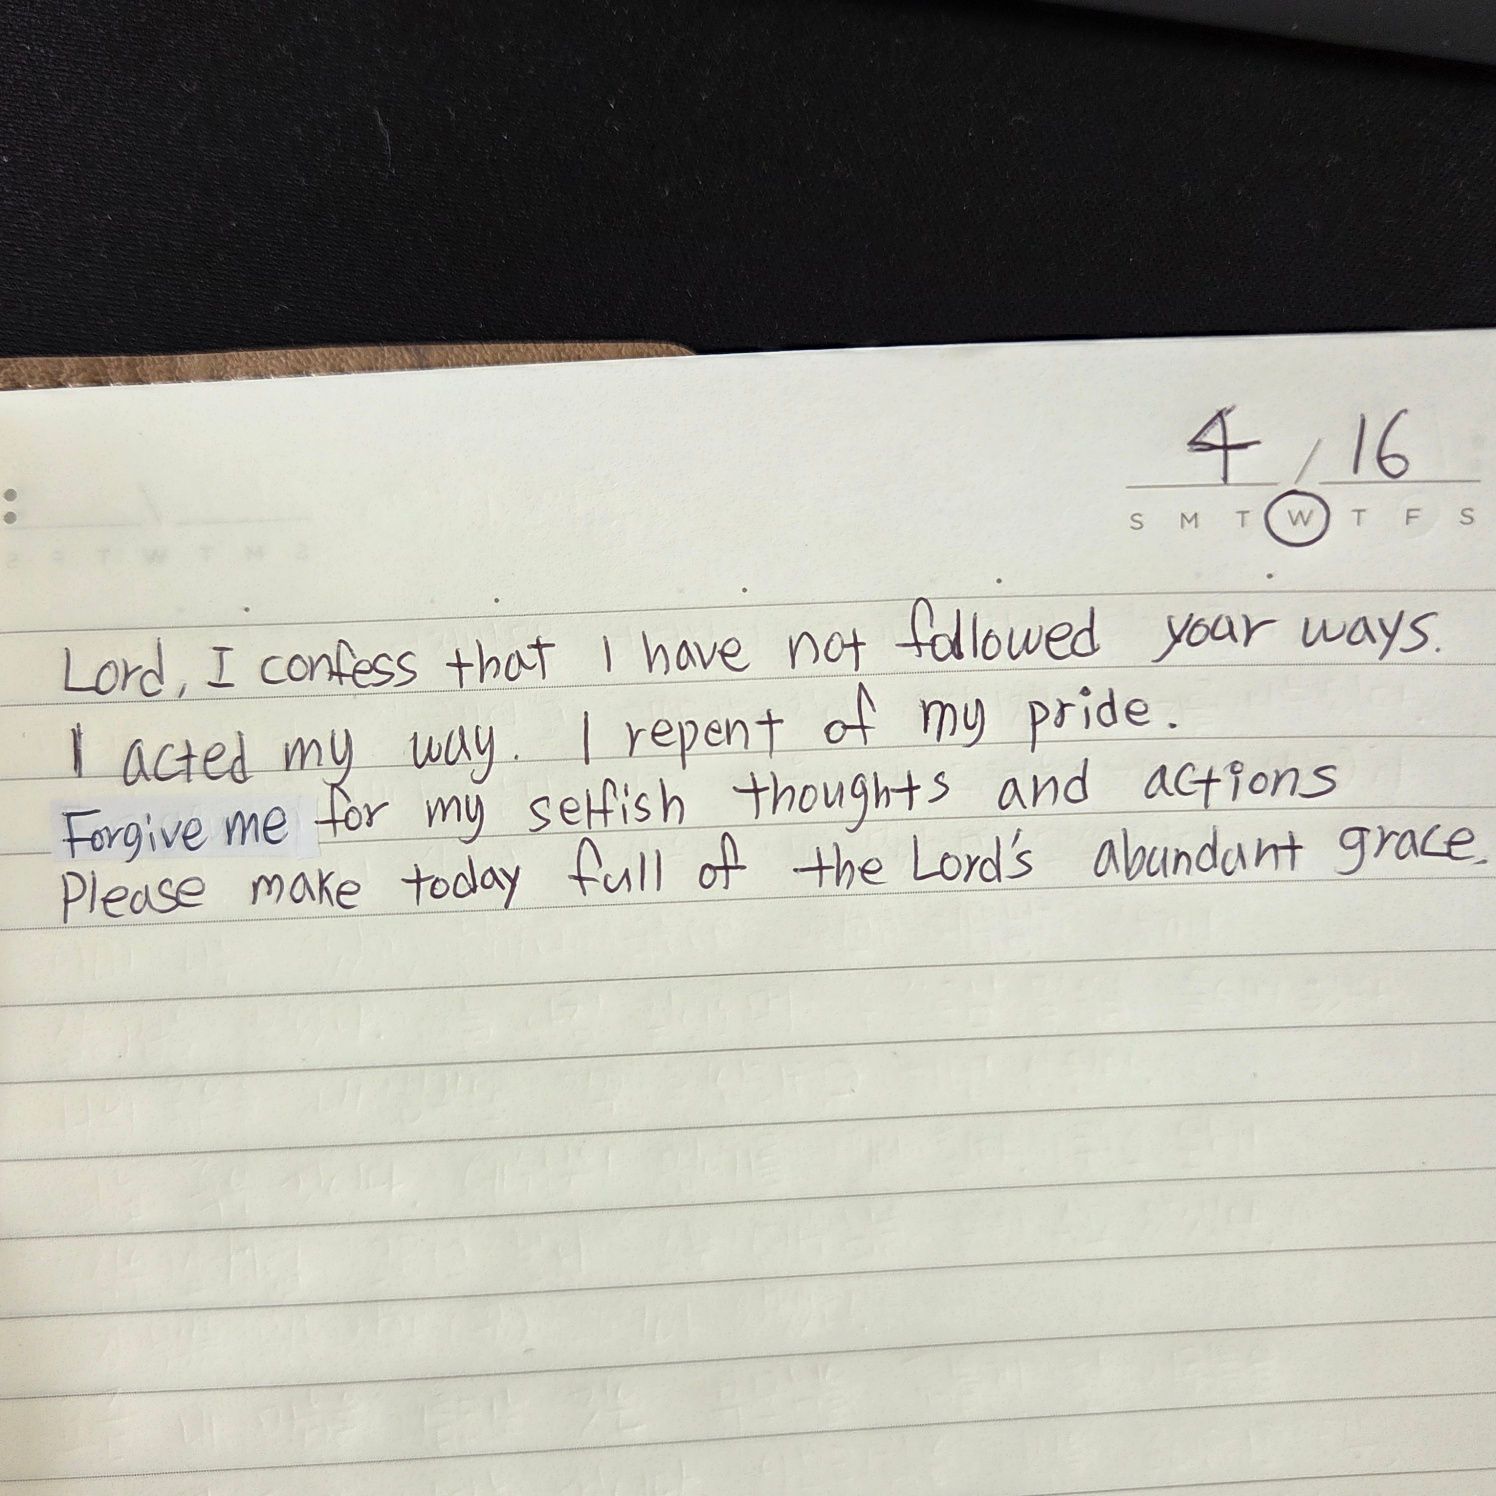 4 / 16
S M T W T F S
Lord, I confess that I have not followed your ways.
I acted my way. I repent of my pride.
Forgive me for my selfish thoughts and actions
Please make today full of the Lord's abundant grace.